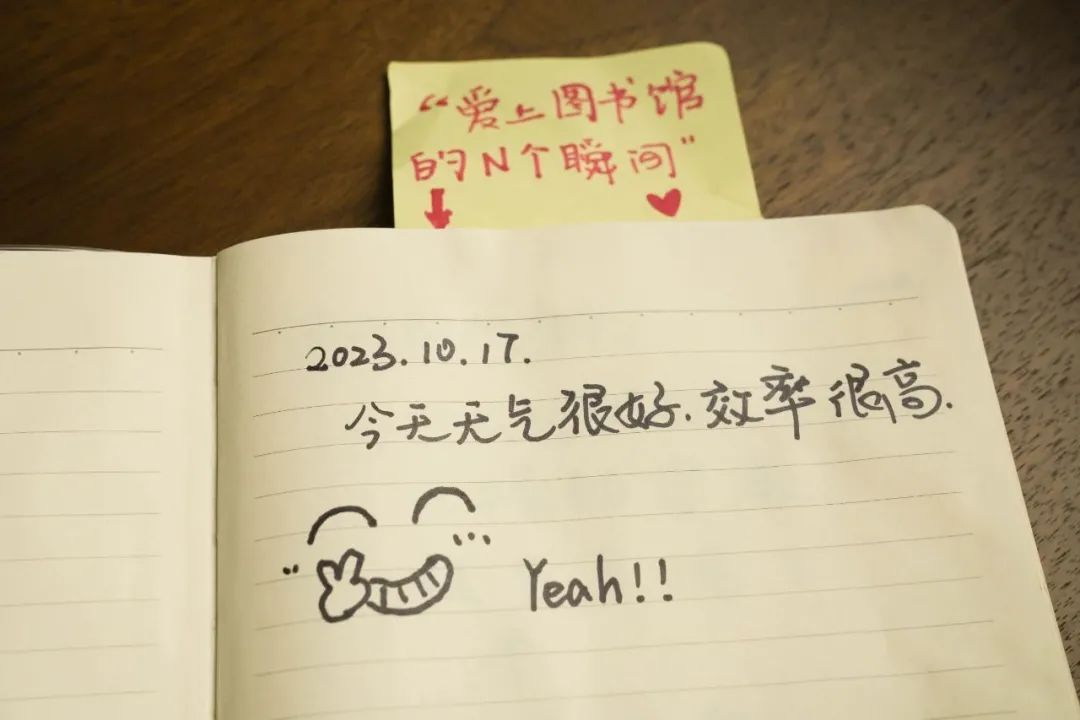 “爱上图书馆
的N个瞬间”
2023.10.17.
今天天气很好.效率很高.
Yeah!!